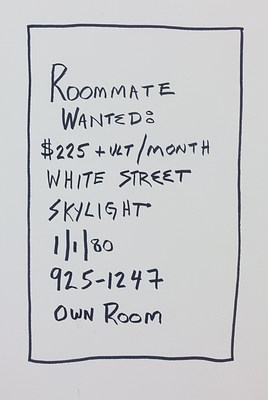 ROOMMATE
WANTED:
$225 + ULT/MONTH
WHITE STREET
SKYLIGHT
1/1/80
925-1247
OWN ROOM